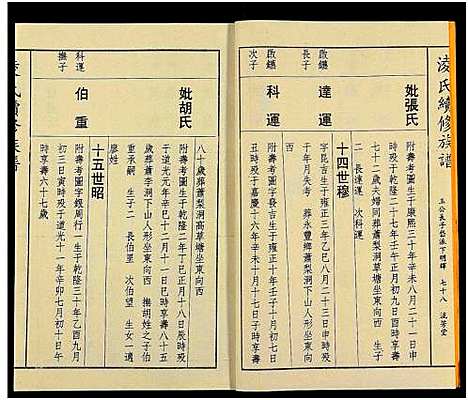 淩氏續修族譜
玉公長子岱派下明輝 七十八 流芳堂
妣張氏
附壽考圖生于康熙三十年辛未八月二十一日申
時歿于乾隆二十七年壬午正月初九日戌時享壽
七十二歲夫婦同葬蕭梨洞高草塘坐東向西 生子
二 長達運 次科運
十四世穆
啟鑣
長子
達運
字昆吉生于康熙六十一年壬寅八月二十三日申時歿
于年月失考 葬永豐鄉蕭梨洞下山人形坐東向西
啟鑣
次子
科運
附壽考圖字發吉生于雍正十年壬子十月初八日
丑時歿于嘉慶十六年辛未十月十七日亥時享壽
八十歲葬蕭梨洞高草塘坐東向西
妣胡氏
附壽考圖生于乾隆二年丁巳正月十八日辰時歿
于道光元年辛巳十二月十一日巳時享壽八十五
歲葬蕭李洞下山人形坐東向西 撫胡姓之子伯
重承嗣 生子二 長伯里 次伯望 生女一適
廖姓
十五世昭
科運
撫子
伯重
附壽考圖字銀周行一生于乾隆三十年乙酉九月
初三日寅時歿于道光十一年辛卯七月初十日午
時享壽六十七歲
淩氏續修族譜